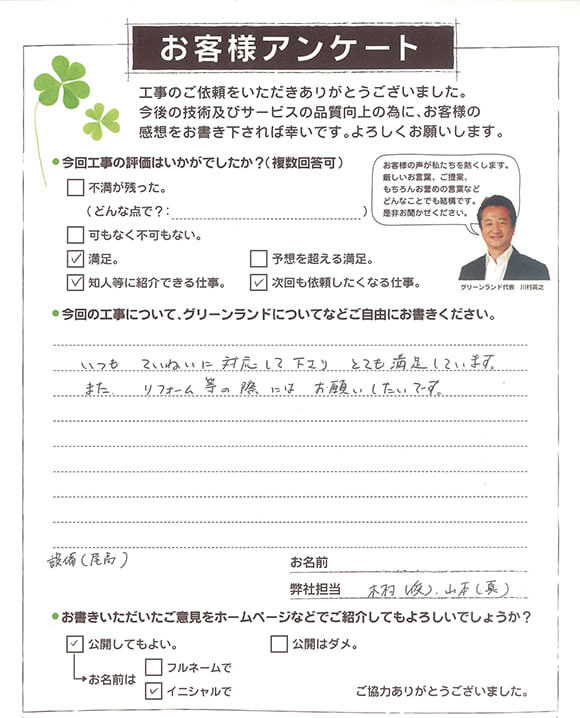 お客様アンケート
工事のご依頼をいただきありがとうございました。
今後の技術及びサービスの品質向上の為に、お客様の
感想をお書き下されば幸いです。よろしくお願いします。
今回工事の評価はいかがでしたか?(複数回答可)
お客様の声が私たちを熱くします。
厳しいお言葉、ご提案、
もちろんお誉めの言葉など
どんなことでも結構です。
是非お聞かせください。
グリーンランド代表 川村英之
不満が残った。
(どんな点で?: )
可もなく不可もない。
満足。 予想を超える満足。
知人等に紹介できる仕事。 次回も依頼したくなる仕事。
今回の工事について、グリーンランドについてなどご自由にお書きください。
いつも ていねいに 対応して下さり とても満足しています。
また リフォーム等の際には お願いしたいです。
設備(尾高)
お名前
弊社担当 木村(俊).山本(真)
お書きいただいたご意見をホームページなどでご紹介してもよろしいでしょうか?
公開してもよい。 公開はダメ。
お名前は フルネームで
イニシャルで
ご協力ありがとうございました。